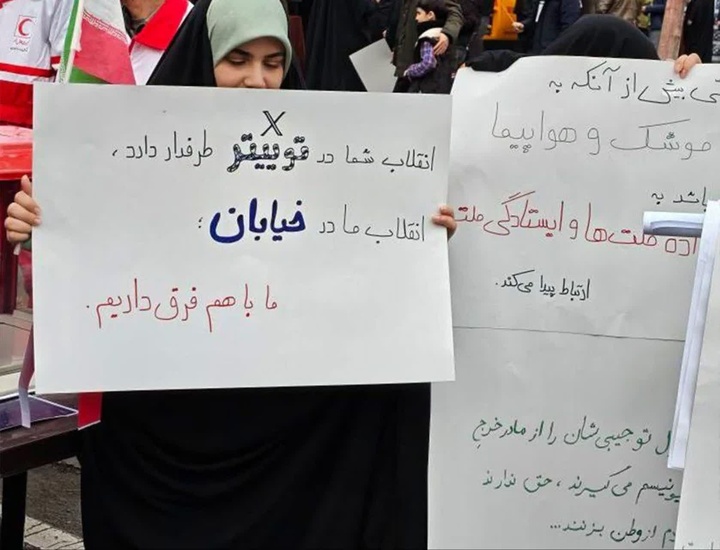 X
انقلاب شما در توییتر طرفدار دارد ،
انقلاب ما در خیابان ؛
ما با هم فرق داریم.
بیش از آنکه به
موشک و هواپیما
باشد به
ملت‌ها و ایستادگی ملت
ارتباط پیدا می‌کند.
تو جیبی‌شان را از مادر خرج
می‌گیرند ، حق ندارند
از وطن بزنند...